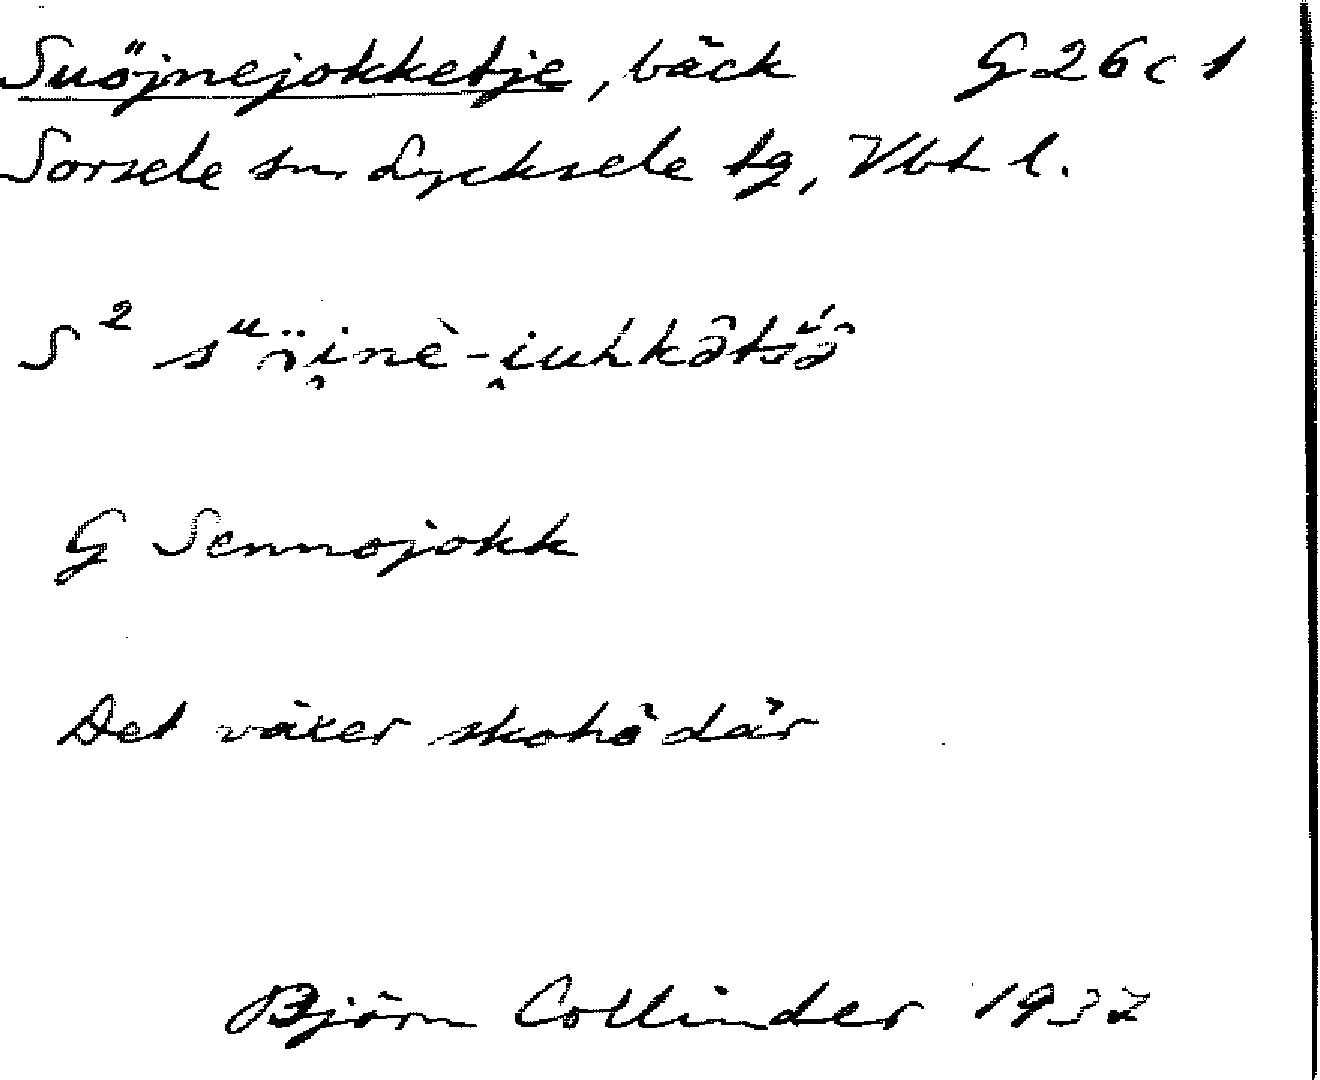 Suöjnejokketje, bäck G26c1
Sorsele sn Lycksele tg, Vbt l.
S²
G Sennojokk
Det växer skohö där
Björn Collinder 1937